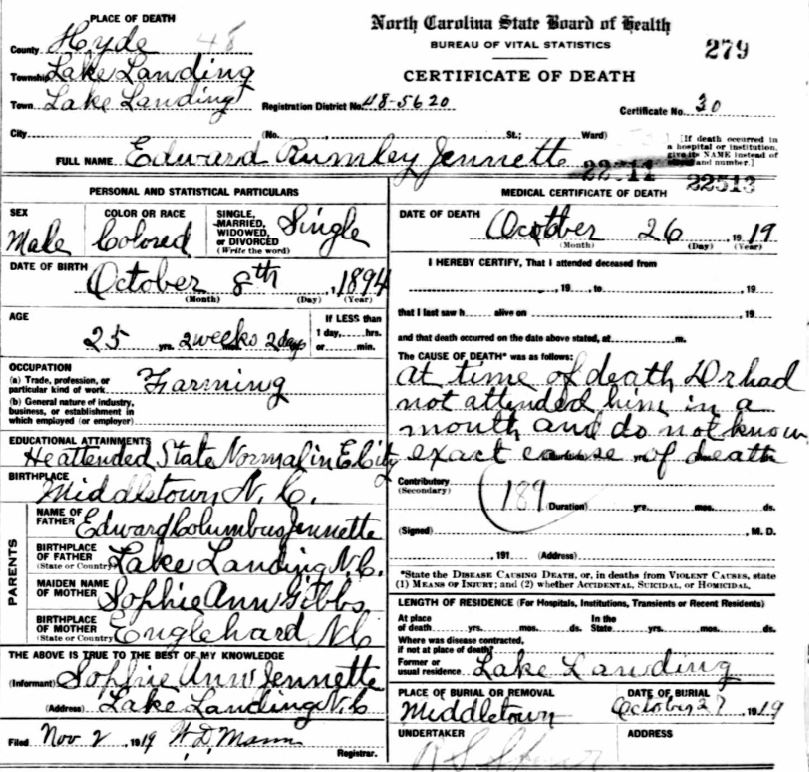 PLACE OF DEATH
County Hyde 48
Township Lake Landing
Town Lake Landing
City
North Carolina State Board of Health
BUREAU OF VITAL STATISTICS
279
CERTIFICATE OF DEATH
Registration District No. 48-5620
Certificate No. 30
(No. , St.; Ward)
[If death occurred in
a hospital or institution,
give its NAME instead of
and number.]
FULL NAME Edward Rumley Jennette
22513
PERSONAL AND STATISTICAL PARTICULARS
SEX
Male
COLOR OR RACE
Colored
SINGLE,
MARRIED,
WIDOWED,
or DIVORCED
(Write the word)
Single
DATE OF BIRTH
October 8th, 1894
(Month) (Day) (Year)
AGE
25 yrs. 2 weeks 2 days
If LESS than
1 day, hrs.
or min.
OCCUPATION
(a) Trade, profession, or
particular kind of work Farming
(b) General nature of industry,
business, or establishment in
which employed (or employer)
EDUCATIONAL ATTAINMENTS
He attended State Normal in E. City
BIRTHPLACE
Middletown N. C.
PARENTS
NAME OF
FATHER Edward Columbus Jennette
BIRTHPLACE
OF FATHER
(State or Country) Lake Landing N.C.
MAIDEN NAME
OF MOTHER Sophie Ann Gibbs
BIRTHPLACE
OF MOTHER
(State or Country) Englehard N C
THE ABOVE IS TRUE TO THE BEST OF MY KNOWLEDGE
(Informant) Sophie Ann Jennette
(Address) Lake Landing N.C
Filed Nov 2, 1919 W. D. Mann
Registrar.
MEDICAL CERTIFICATE OF DEATH
DATE OF DEATH
October 26 1919
(Month) (Day) (Year)
I HEREBY CERTIFY, That I attended deceased from
, 19 , to , 19
that I last saw h alive on , 19
and that death occurred on the date above stated, at m.
The CAUSE OF DEATH* was as follows:
at time of death Dr had
not attended him in a
month and do not know
exact cause of death
Contributory
(Secondary)
189
(Duration) yrs. mos. ds.
(Signed) M. D.
, 191 (Address)
*State the DISEASE CAUSING DEATH, or, in deaths from VIOLENT CAUSES, state
(1) MEANS OF INJURY; and (2) whether ACCIDENTAL, SUICIDAL, or HOMICIDAL.
LENGTH OF RESIDENCE (For Hospitals, Institutions, Transients or Recent Residents)
At place
of death yrs. mos. ds.
In the
State yrs. mos. ds.
Where was disease contracted,
if not at place of death?
Former or
usual residence Lake Landing
PLACE OF BURIAL OR REMOVAL
Middletown
DATE OF BURIAL
October 27 1919
UNDERTAKER
ADDRESS